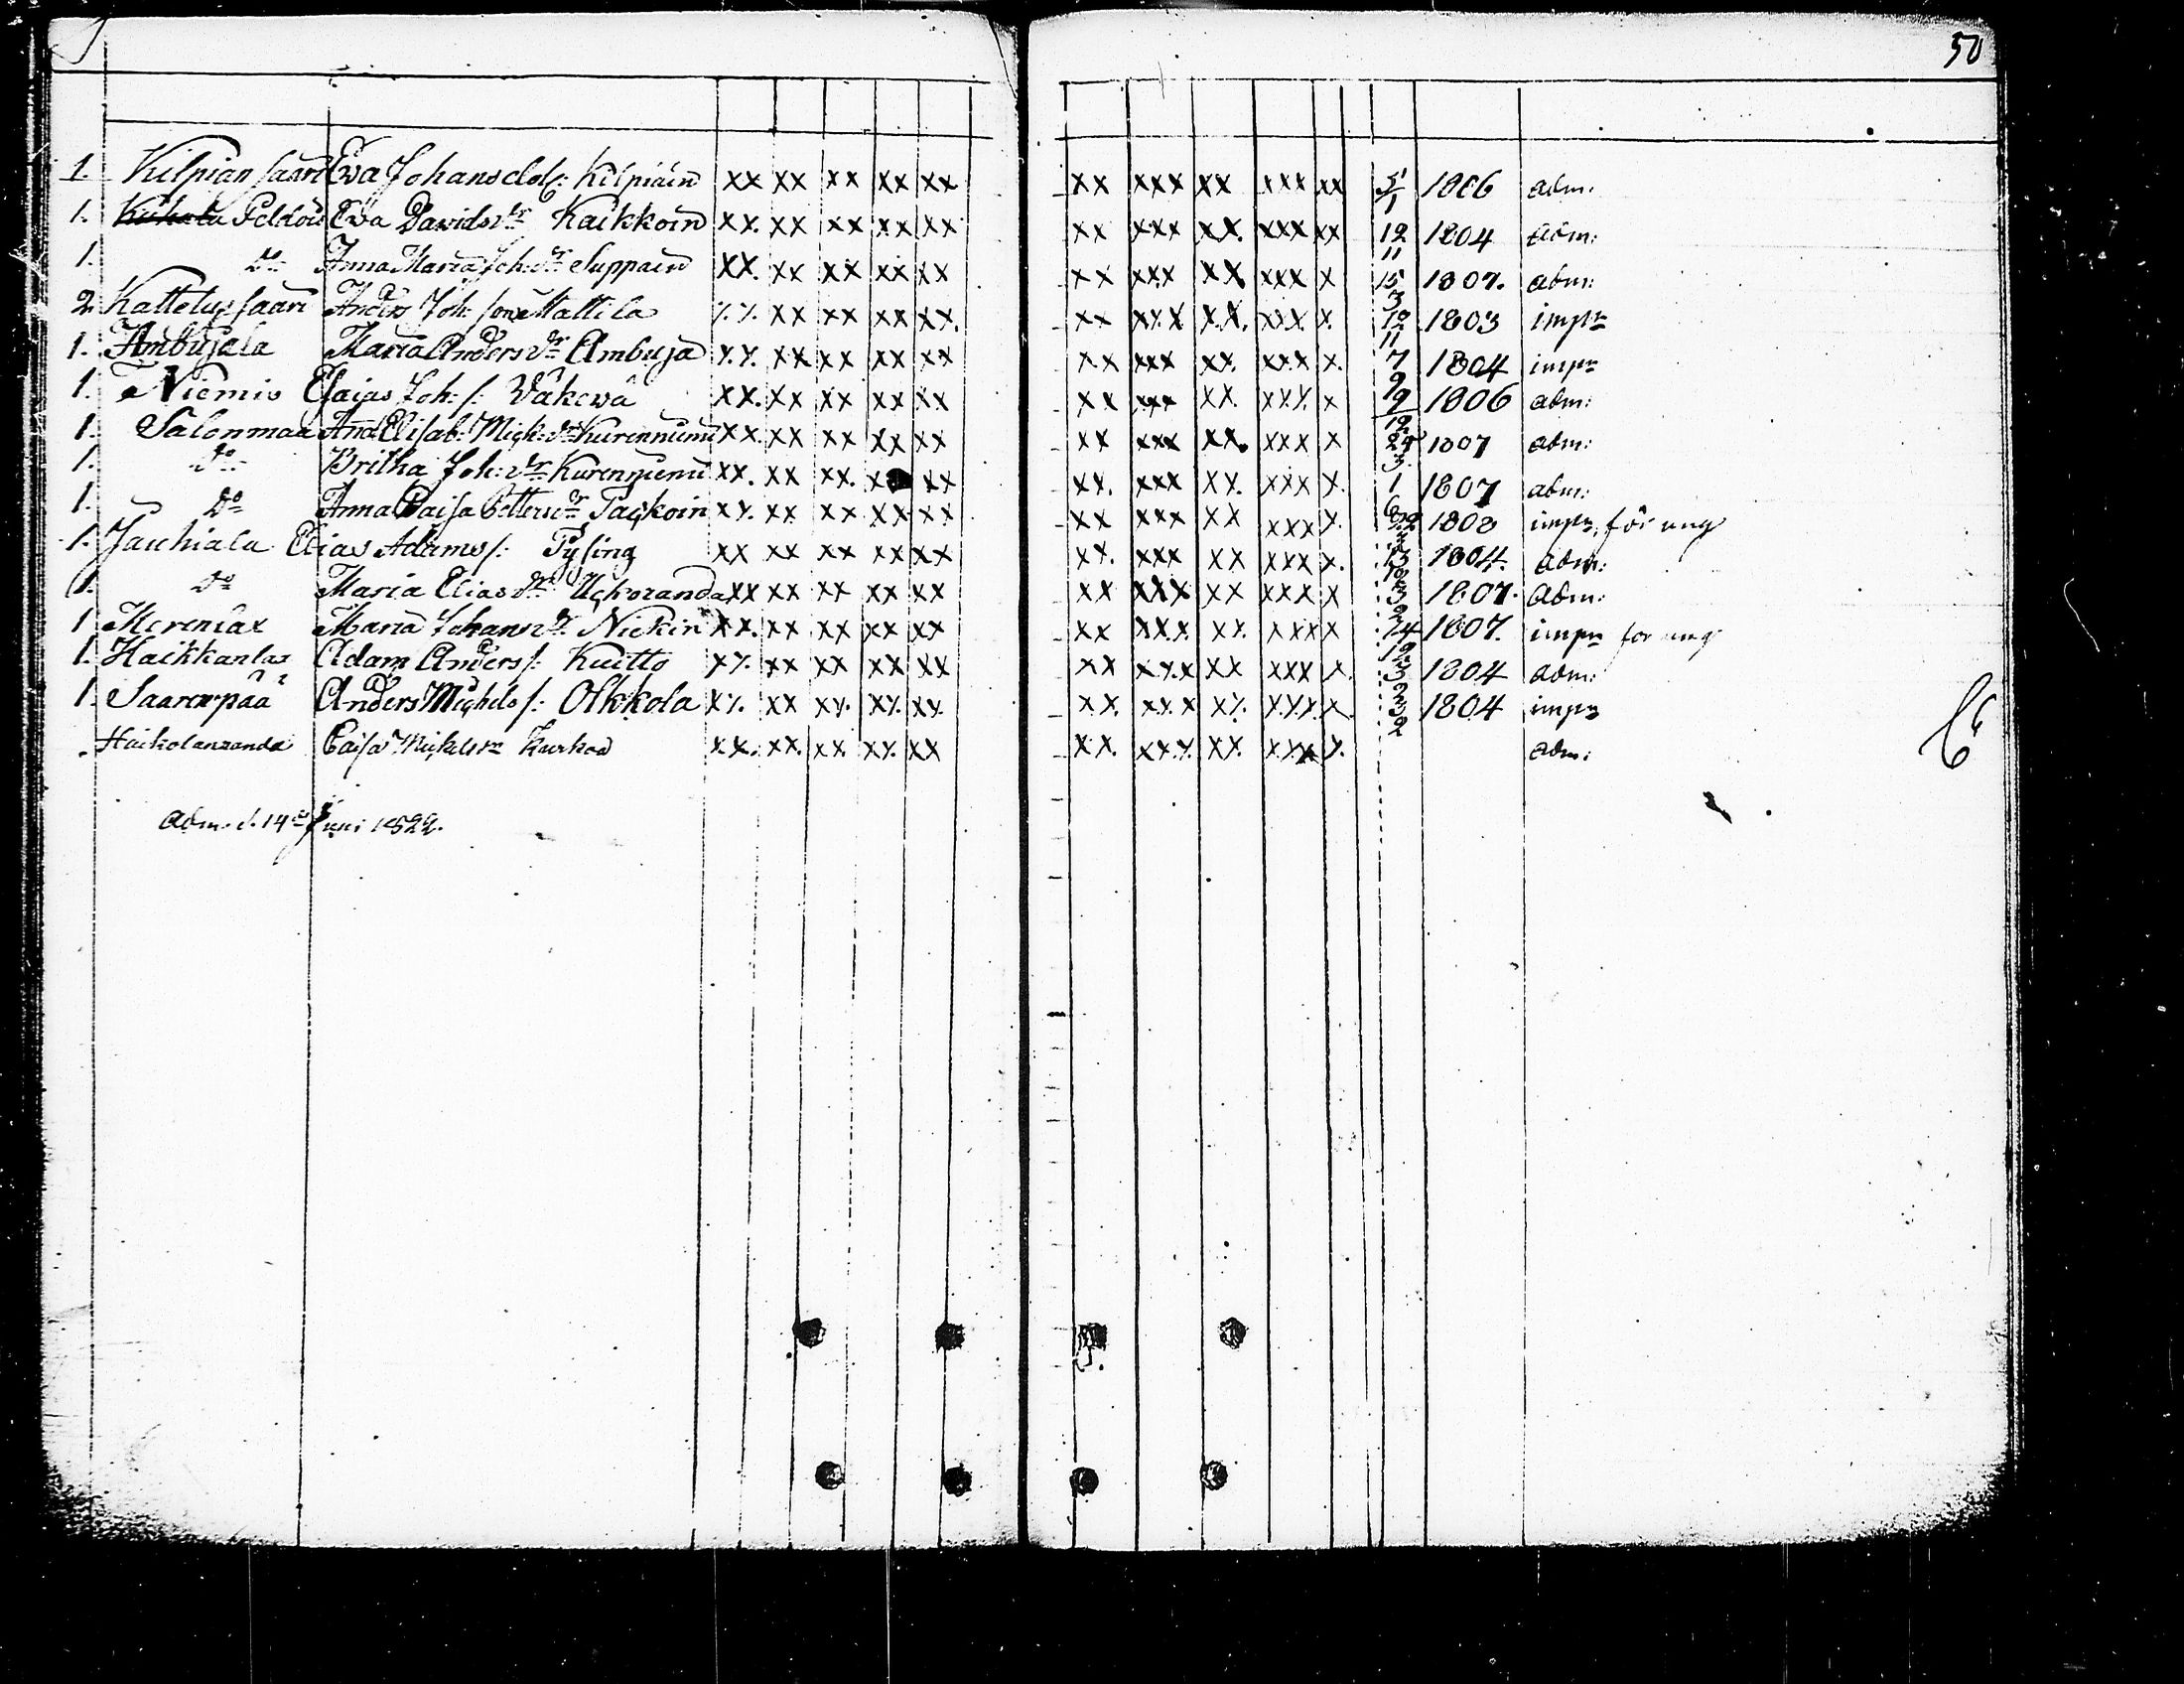 50
1. Kilpian saari Eva Johansdot: Kilpiäin xx xx xx xx xx xx xxx xx xxx xx 5/1 1806 adm:
1. Peldois Eva Davids dr Kaikkoin xx. xx xx xx xx xx xxx xx. xxx xx 12/11 1804 adm:
1. do Anna Maria Joh: dr Suppain xx. xx xx xx xx xx xxx xx xxx x 15/3 1807. adm:
2. Kattelus saari Anders Joh: son Mattila xx xx xx xx xx. xx xxx xx. xxx x. 12/11 1803 impr
1. Ambujala Maria Anders dr Ambuja xx. xx xx xx xx xx xxx xx. xxx x. 7/9 1804 impr
1. Niemis Esaias Joh: s: Väkevä xx. xx xx xx xx xx xxx xx. xxx. x 9/12 1806 adm:
1. Salonmaa Anna Elisab: Mick: dr Kurennumi xx. xx xx xx xx xx xxx xx. xxx x 24/3 1807 adm:
1. do Britha Joh: dr Kurennumi xx. xx xx. xx xx. xxx xx. xxx x. 1/6 1807 adm:
1. do Anna Caisa Petters dr Taskoin xx. xx xx xx xx xx xxx xx xxx x. 1808 impr, för ung
1. Jauhiala Elias Adams s: Pysing xx xx xx xx xx xx. xxx xx xxx x. 13/12 1804. adm:
1. do Maria Elias dr Uskoranda xx xx xx xx xx xx xxx xx xxx x 3/2 1807. adm:
1 Kereniäx Maria Johans dr Nickin xx. xx xx xx xx xx xxx xx. xxx x 24/12 1807. impr for ung
1. Haikkanlax Adam Anders s: Kuitto xx. xx xx xx xx xx xxx xx xxx x. 3/2 1804 adm:
1. Saarenpää Anders Michels s: Olkkola xx. xx xx. xx. xx. xx. xxx xx. xxx. x. 3/2 1804 impr
Haikolanranda Caisa Mickels dr Kurkoa xx. xx. xx. xx. xx xx. xxx. xx. xxx x. adm:
Adm. d. 14de Juni 1822.